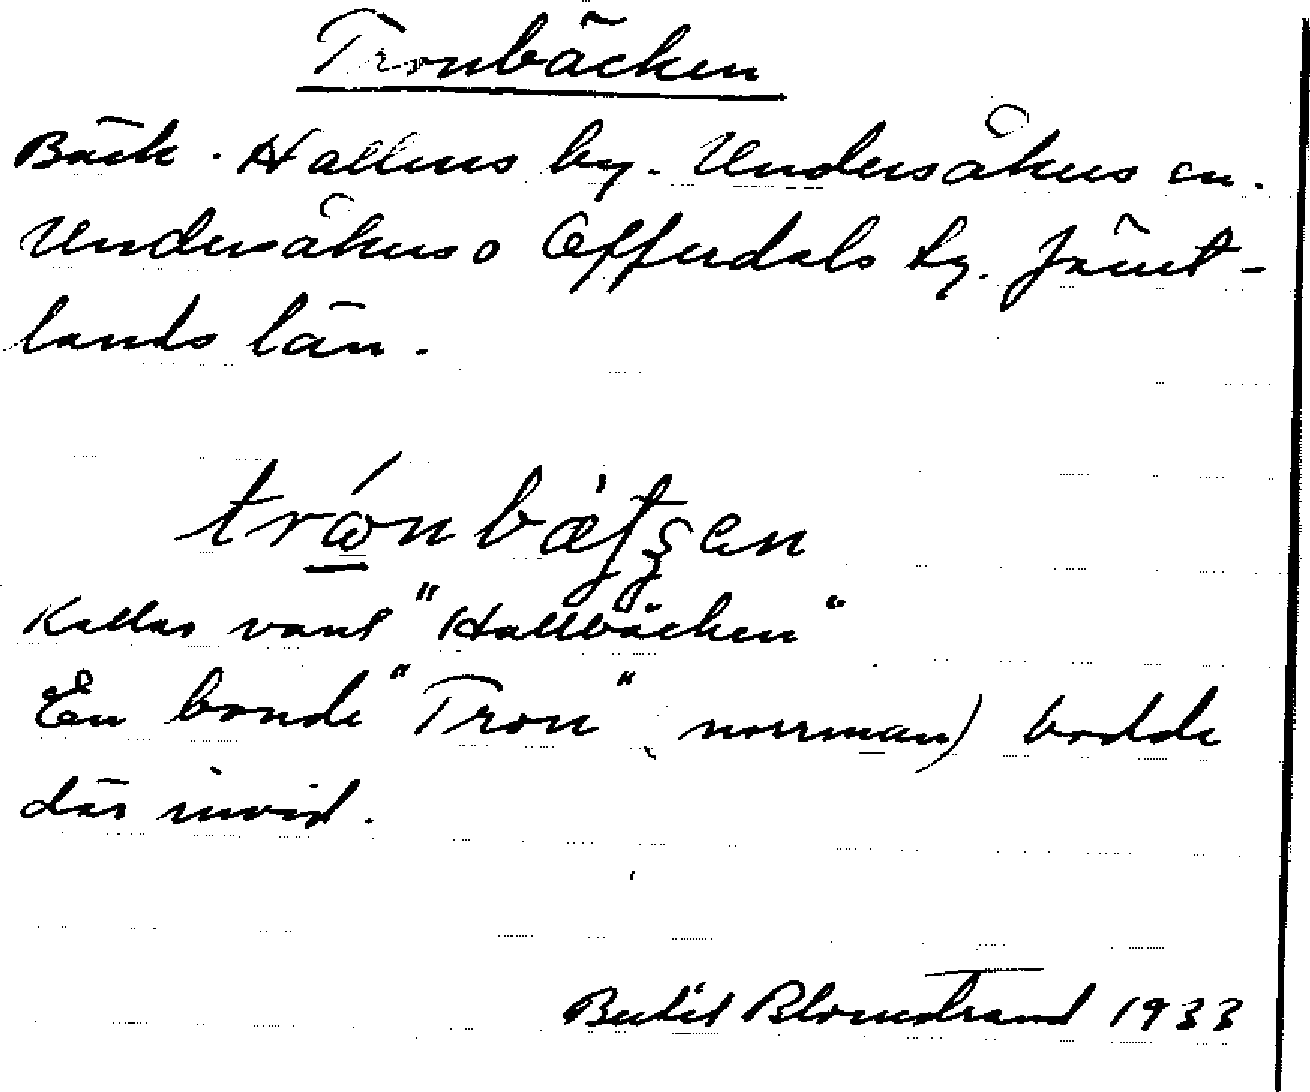 Tronbäcken
Bäck. Hallens by. Undersåkers sn.
Undersåkers o Offerdals tg. Jämt-
lands län.
trǿnbæ̀tʂen
Kallas vanl "Hallbäcken"
En bonde "Tron" (norrman) bodde
där invid.
Bertil Blomstrand 1933